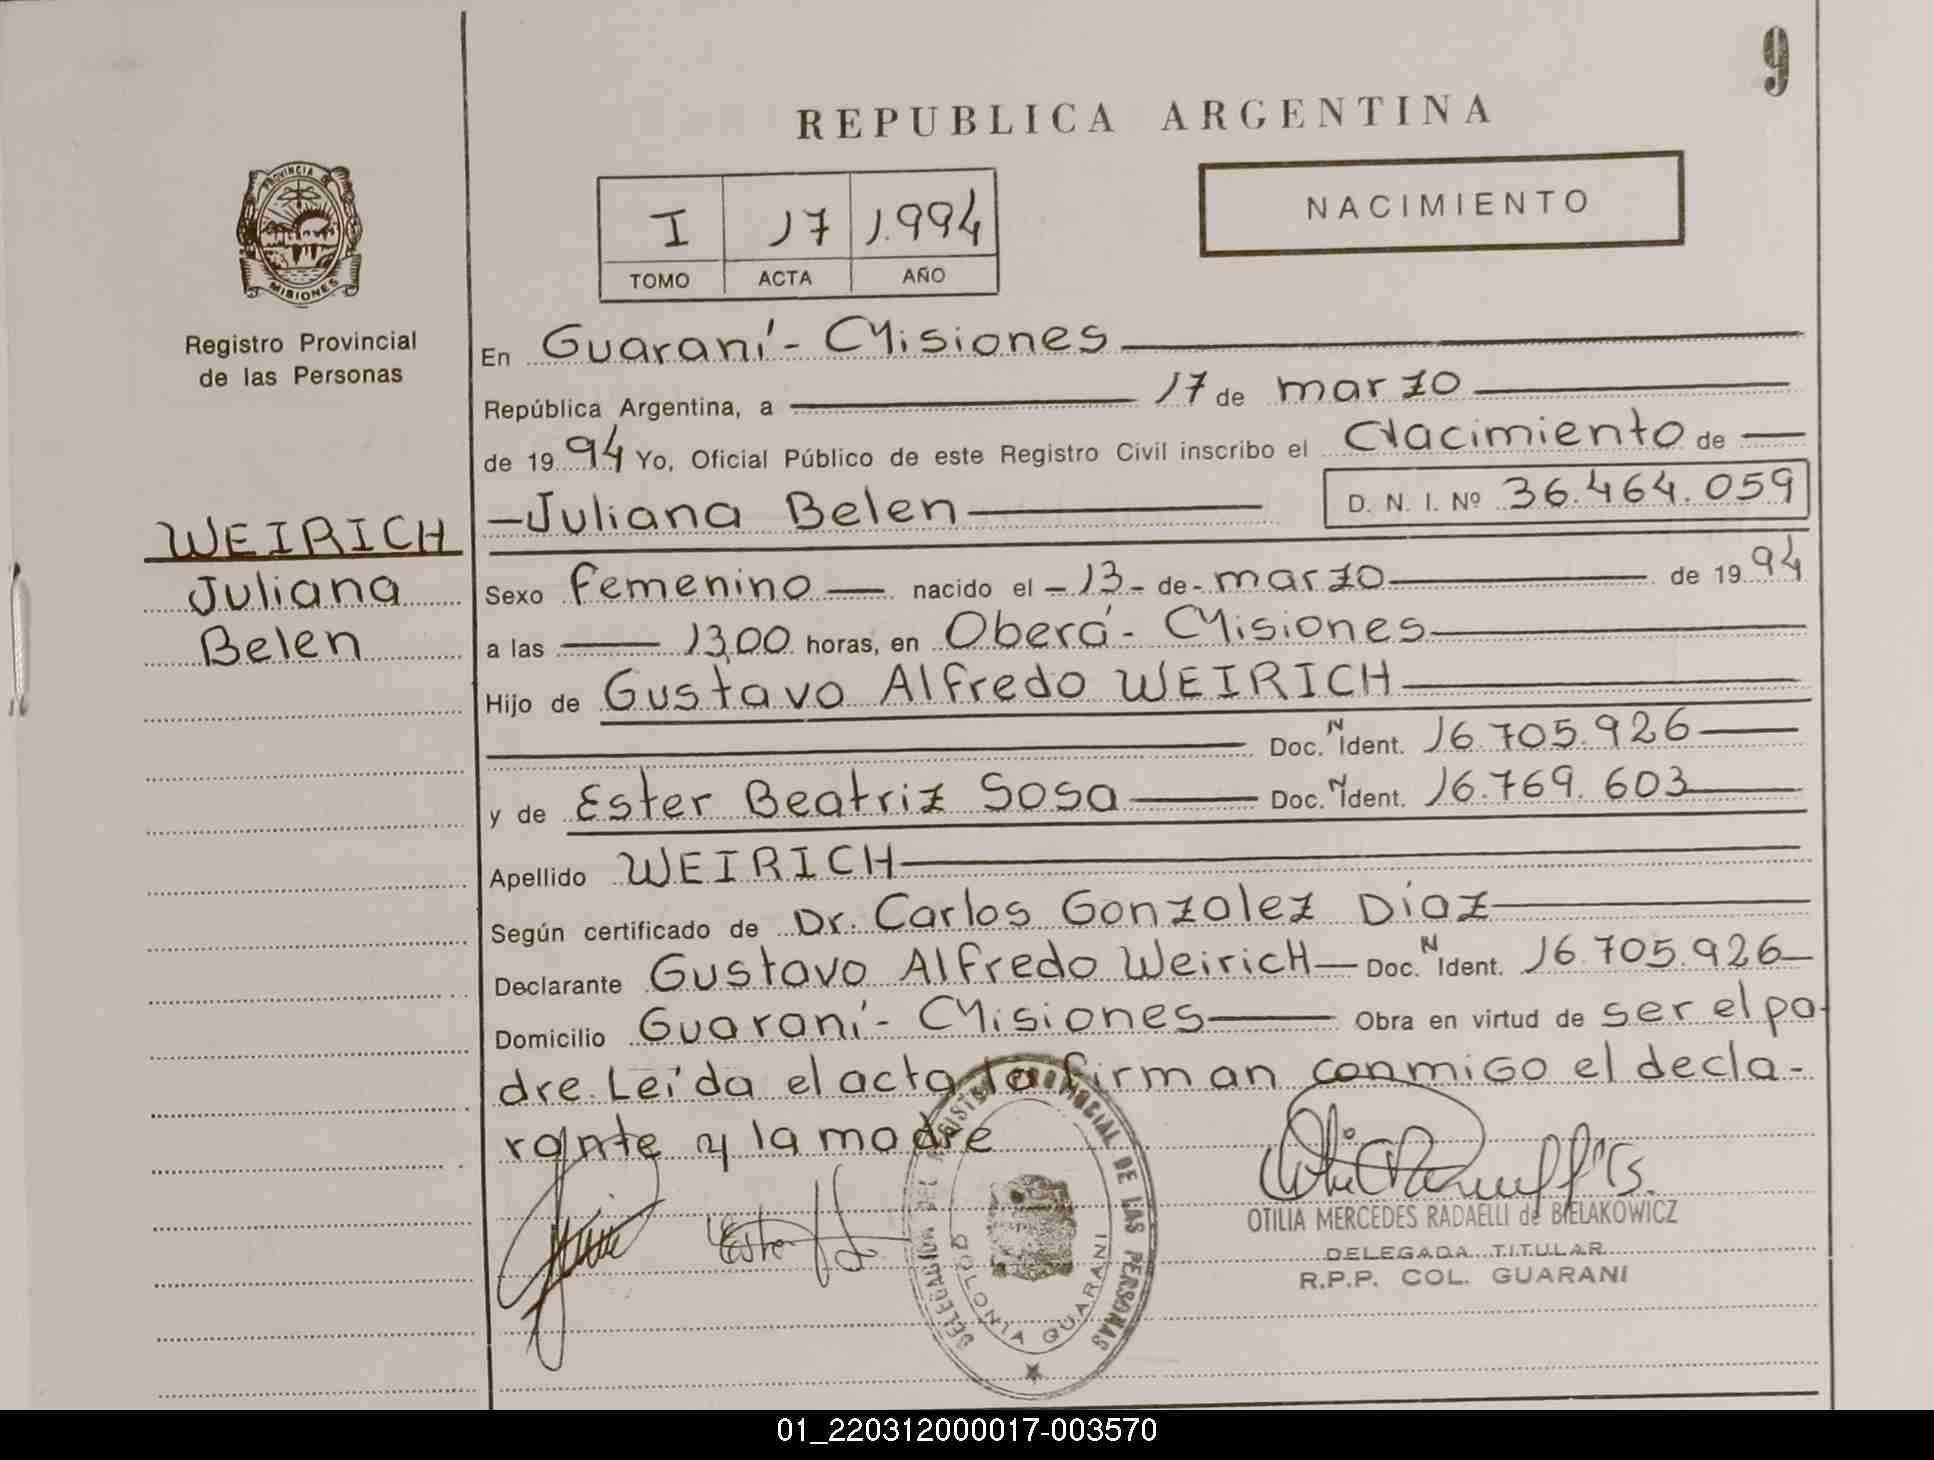 9
REPUBLICA ARGENTINA
PROVINCIA DE
MISIONES
Registro Provincial
de las Personas
I 17 1.994
TOMO ACTA AÑO
NACIMIENTO
En Guaraní - Misiones
República Argentina, a 17 de marzo
de 1994 Yo, Oficial Público de este Registro Civil inscribo el Nacimiento de
- Juliana Belen D. N. I. Nº 36.464.059
WEIRICH
Juliana
Belen
Sexo Femenino nacido el - 13 - de - marzo de 1994
a las 13,00 horas, en Oberá - Misiones
Hijo de Gustavo Alfredo WEIRICH
Doc. N Ident. 16.705.926
y de Ester Beatriz Sosa Doc. N Ident. 16.769.603
Apellido WEIRICH
Según certificado de Dr. Carlos Gonzalez Díaz
Declarante Gustavo Alfredo WeiricH Doc. N Ident. 16.705.926
Domicilio Guaraní - Misiones Obra en virtud de ser el pa-
dre. Leída el acta la firman conmigo el decla-
rante y la madre
DELEGACION DEL REGISTRO PROVINCIAL DE LAS PERSONAS
COLONIA GUARANI
OTILIA MERCEDES RADAELLI de BIELAKOWICZ
DELEGADA TITULAR
R.P.P. COL. GUARANI
01_220312000017-003570